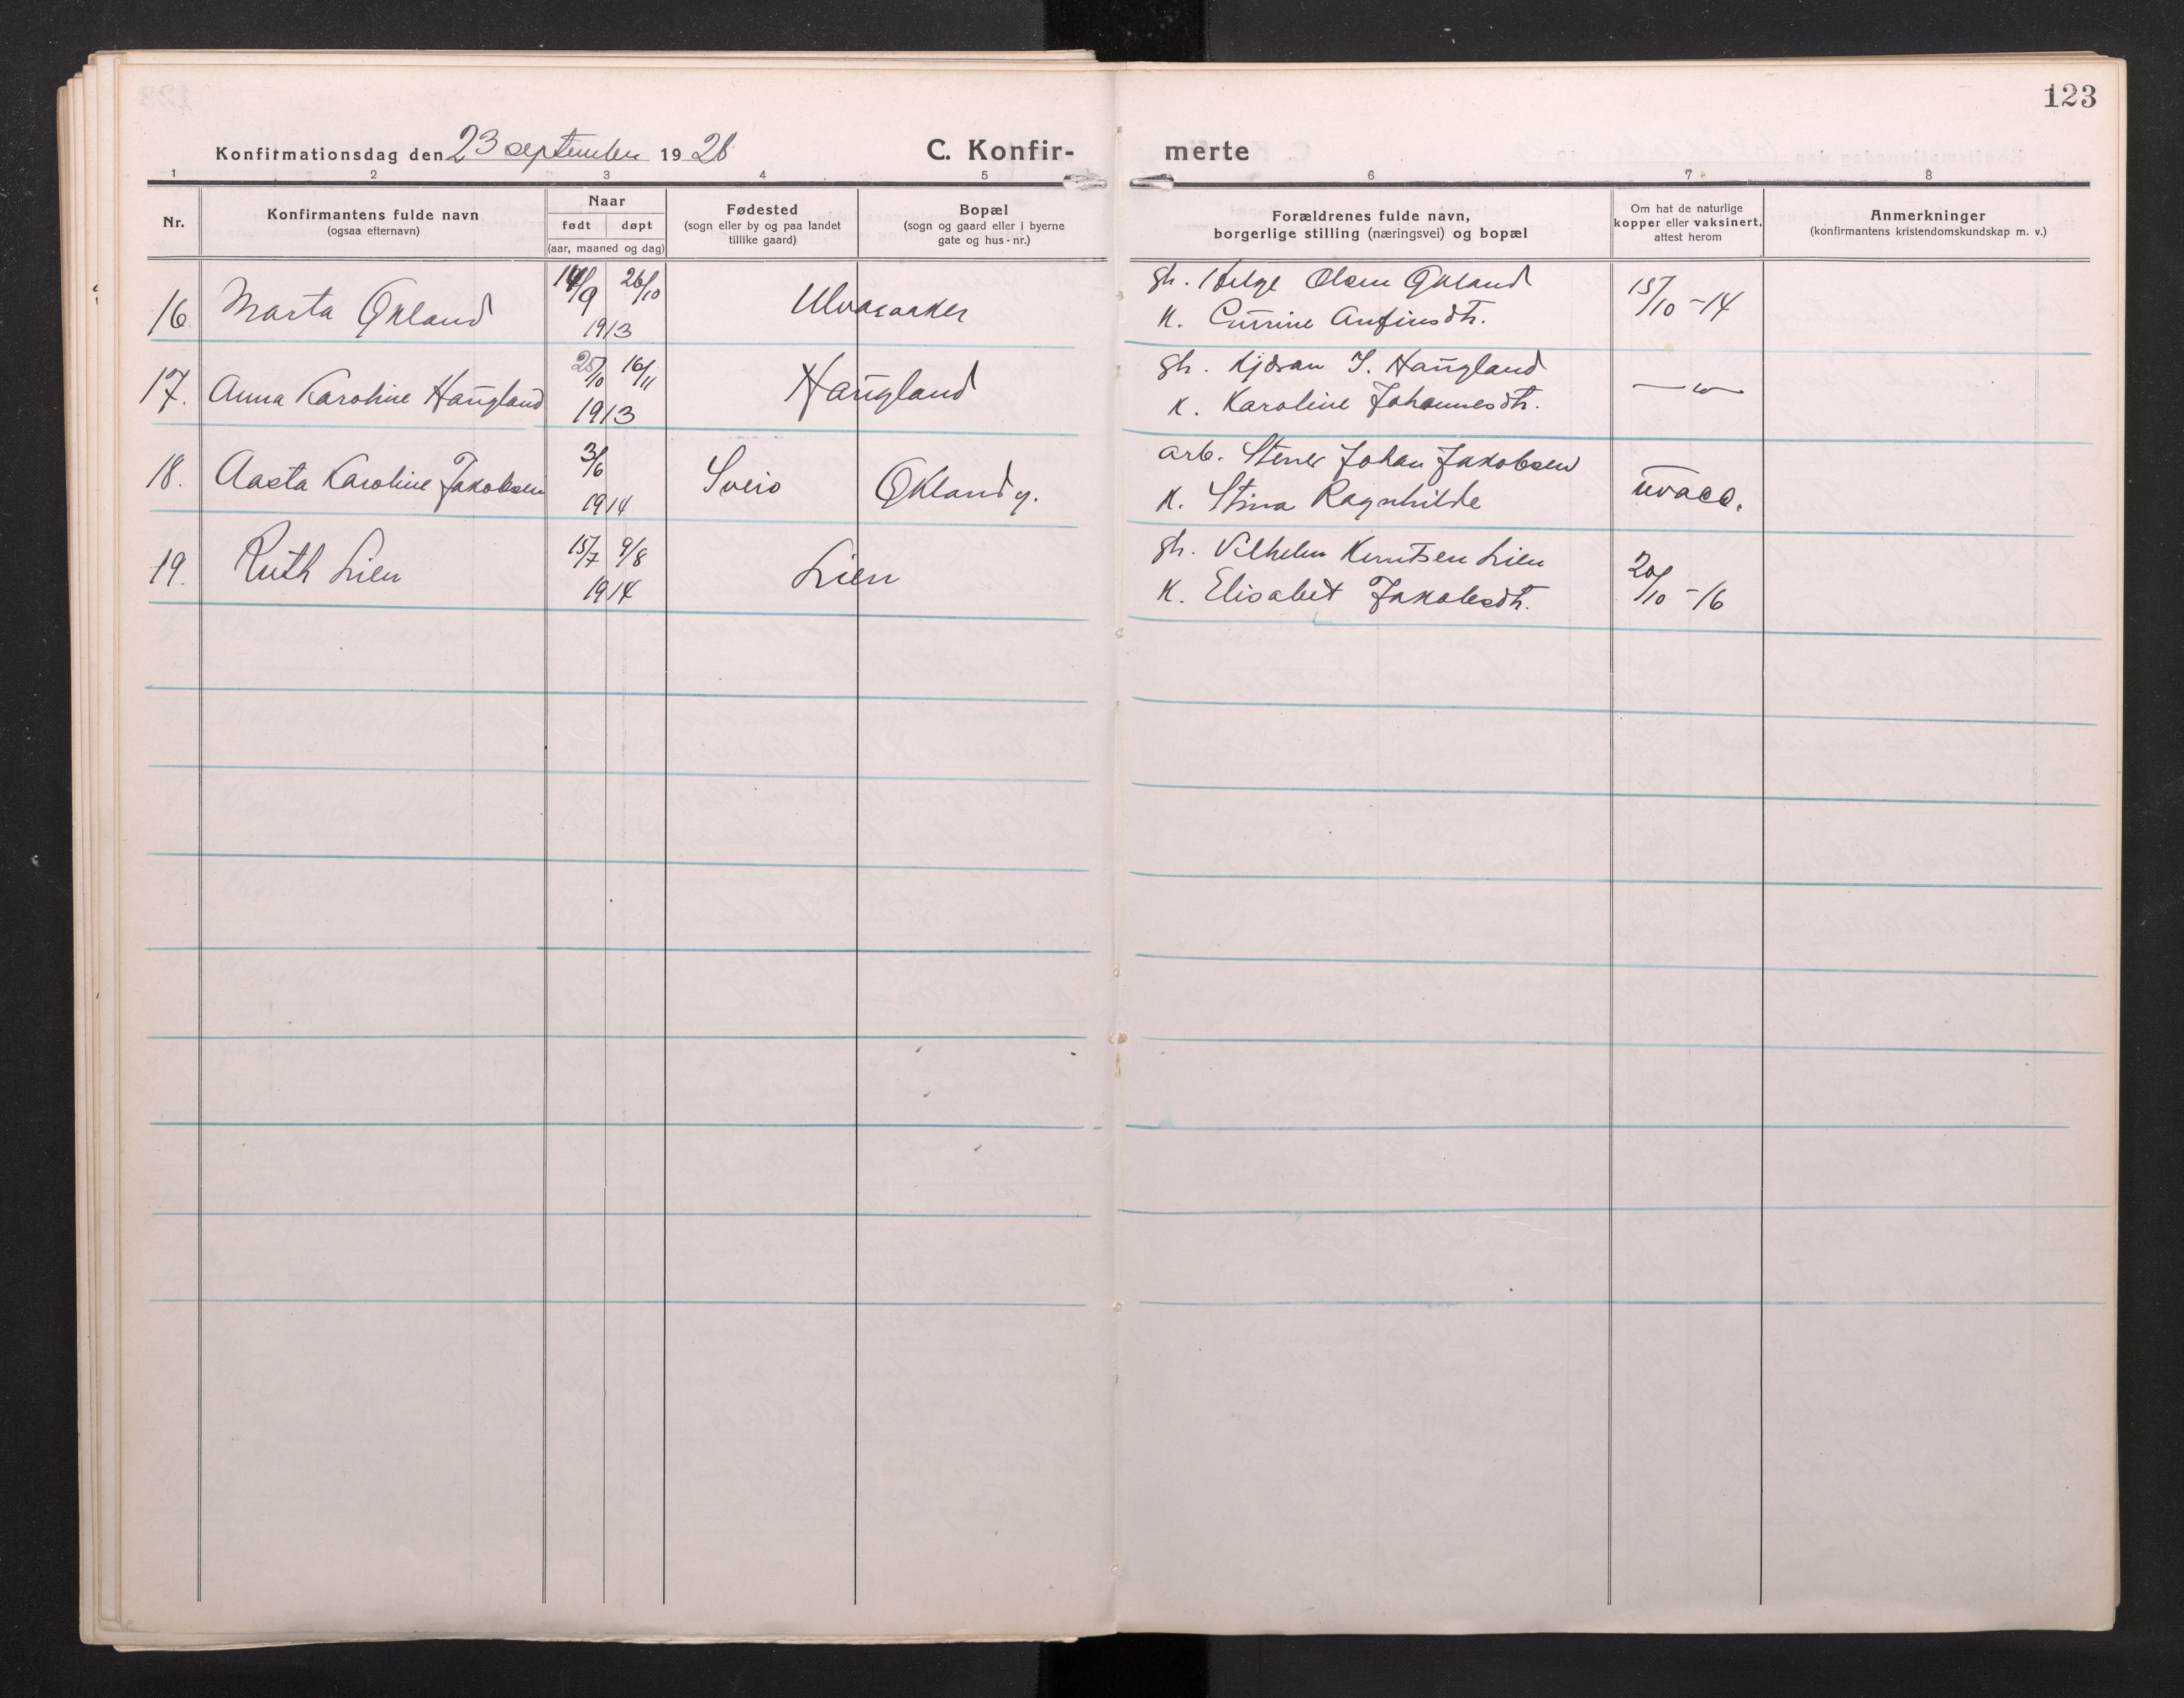 123
Konfirmationsdag den 23 september 1928
C. Konfir-merte
1 2 3 4 5 6 7 8
Nr.
Konfirmantens fulde navn
(ogsaa efternavn)
Naar
født døpt
(aar, maaned og dag)
Fødested
(sogn eller by og paa landet
tillike gaard)
Bopæl
(sogn og gaard eller i byerne
gate og hus-nr.)
Forældrenes fulde navn,
borgerlige stilling (næringsvei) og bopæl
Om hat de naturlige
kopper eller vaksinert,
attest herom
Anmerkninger
(konfirmantens kristendomskundskap m. v.)
16 Marta Økland 14/9 26/10 1913 Ulvesaaker gb. Helge Olsen Økland 15/10 -14
K. Anfinsdtr.
17. Anna Karoline Haugland 25/10 16/11 1913 Haugland gb. Kjøran I. Haugland —„—
K. Karoline Johannesdtr.
18. Aasta Karoline Jakobsen 3/6 1914 Sveio Økland y. arb. Stener Johan Jakobsen uvacc.
K. Stina Ragnhilde
19. Ruth Lien 15/7 9/8 1914 Lien gb. Vilhelm Knutsen Lien 20/10 -16
K. Elisabet Jakobsdtr.